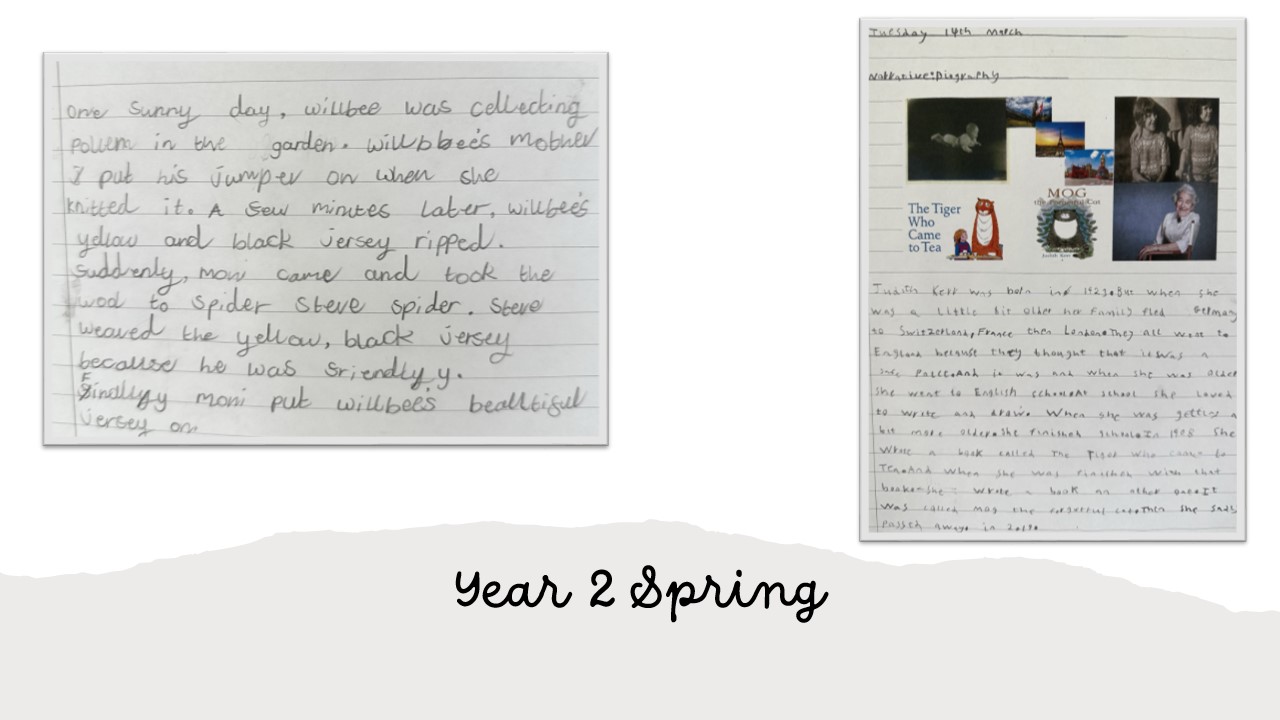 one sunny day, willbee was collecting
pollem in the garden. willbbee's mother
I put his jumper on when she
knitted it. A sew minutes later, willbee's
yellow and black jersey ripped.
suddenly, mom came and took the
wool to spider steve spider. Steve
weaved the yellow, black jersey
because he was sriendly y.
Finallyy mom put willbee's beautisul
jersey on
Tuesday 14th March
Narrative: Biography
The Tiger
Who
Came
to Tea
MOG
the Forgetful Cat
Judith Kerr
Judith Kerr was born in 1923. But when she
was a little bit older her family fled Germany
to Switzerland, France then London. They all went to
England because they thought that it was a
safe. And it was and when she was older
she went to English school. At school she loved
to write and draw. When she was getting a
bit more older. she finished school. In 1968 she
wrote a book called The Tiger who came to
Tea. And when she was finished with that
book. she wrote a book an other one. It
was called mog the forgetful cat. Then she sadly
passed away. in 2019.
Year 2 Spring